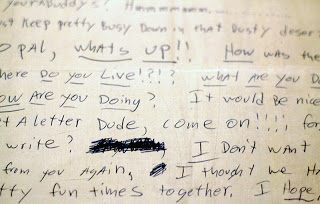 your Buddy's? Hmmmmmm......
ust Keep pretty Busy Down in that Dusty deser
O pal, whats up!! How was the
here Do you Live!?!? what Are you D
How Are you Doing? It would Be nice
et A letter Dude, come on!!!! for
write? I Don't want
from you AgAin, I thought we H
tty fun times together. I Hope,